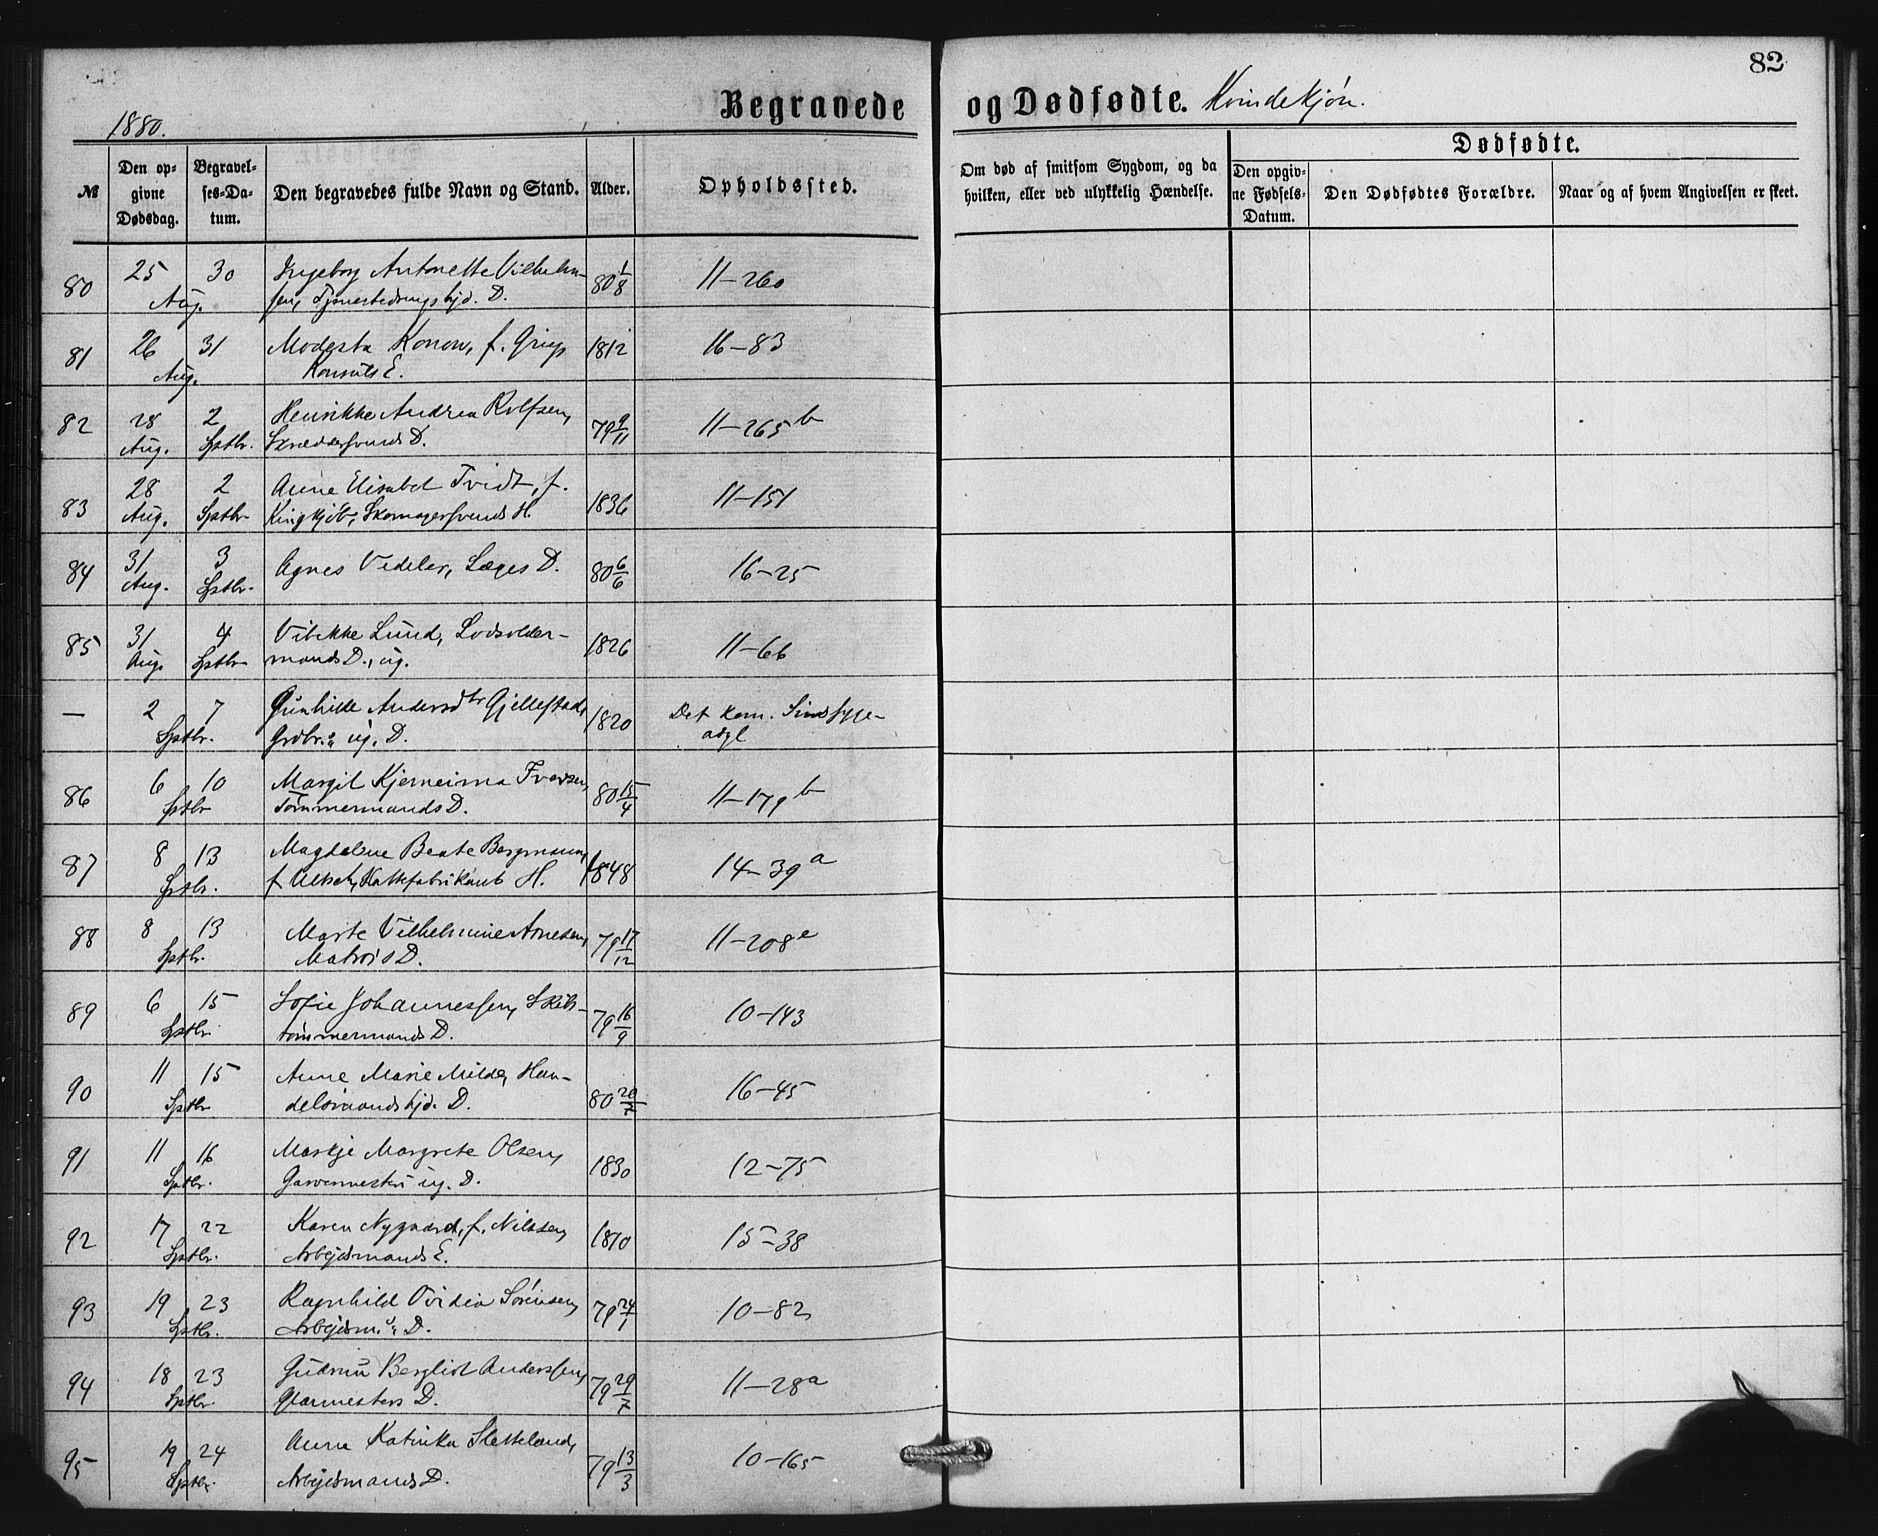 82
1880.
Begravede og Dødfødte. Kvindekjøn.
№
Den opgivne Dødsdag.
Begravelses-Datum.
Den begravedes fulde Navn og Stand.
Alder.
Opholdssted.
Om død af smitsom Sygdom, og da hvilken, eller ved ulykkelig Hændelse.
Dødfødte.
Den opgivne Fødsels-Datum.
Den Dødfødtes Forældre.
Naar og af hvem Angivelsen er skeet.
80 25 30 Ingeborg Antonette Vilhelm- 80 1/8 11-260
Aug. sen, D.
81 26 31 Modesta Konow, f. Grieg 1812 16-83
Aug. Konsuls E.
82 28 2 Henrikke Andrea Rolfsen, 79 9/11 11-265 b
Aug. Sptbr. Skræddersvends D.
83 28 2 Anne Elisabet Tvidt, f. 1836 11-151
Aug. Sptbr. Skomagersvends H.
84 31 3 Agnes Vedeler, Læges D. 80 6/6 16-25
Aug. Sptbr.
85 31 4 Vibekke Lund, Lodsolder- 1826 11-66
Aug. Sptbr. mands D., ug.
— 2 7 Gunhilde Andersdtr Gjellestad, 1820 Det kom. Sindssyge-
Sptbr. Grdbr.s ug. D. asyl
86 6 10 Margit Iversen, 80 15/4 11-179 b
Sptbr Tømmermands D.
87 8 13 Magdalene Beate Bergmann, 1848 14-39 a
Sptbr. f. H.
88 8 13 Marte Vilhelmine Arnesen, 79 17/12 11-208 e
Sptbr. Matros D.
89 6 15 Sofie Johannessen, Skibs- 79 16/9 10-143
Sptbr. tømmermands D.
90 11 15 Anne Marie Milde, Han- 80 20/7 16-45
Sptbr delsmands D.
91 11 16 Margrete Olsen, 1830 12-75
Sptbr. Garvermesters ug. D.
92 17 22 Karen Nygaard, f. Nilssen, 1810 15-38
Sptbr. Arbejdsmands E.
93 19 23 Ragnhild Ovidia Sørensen, 79 24/1 10-82
Sptbr. Arbejdsm.s D.
94 18 23 Gudrun Bergliot Anderssen, 79 29/7 11-28 a
Sptbr. Glarmesters D.
95 19 24 Anna Katinka Sletteland, 79 13/3 10-165
Sptbr. Arbejdsmands D.